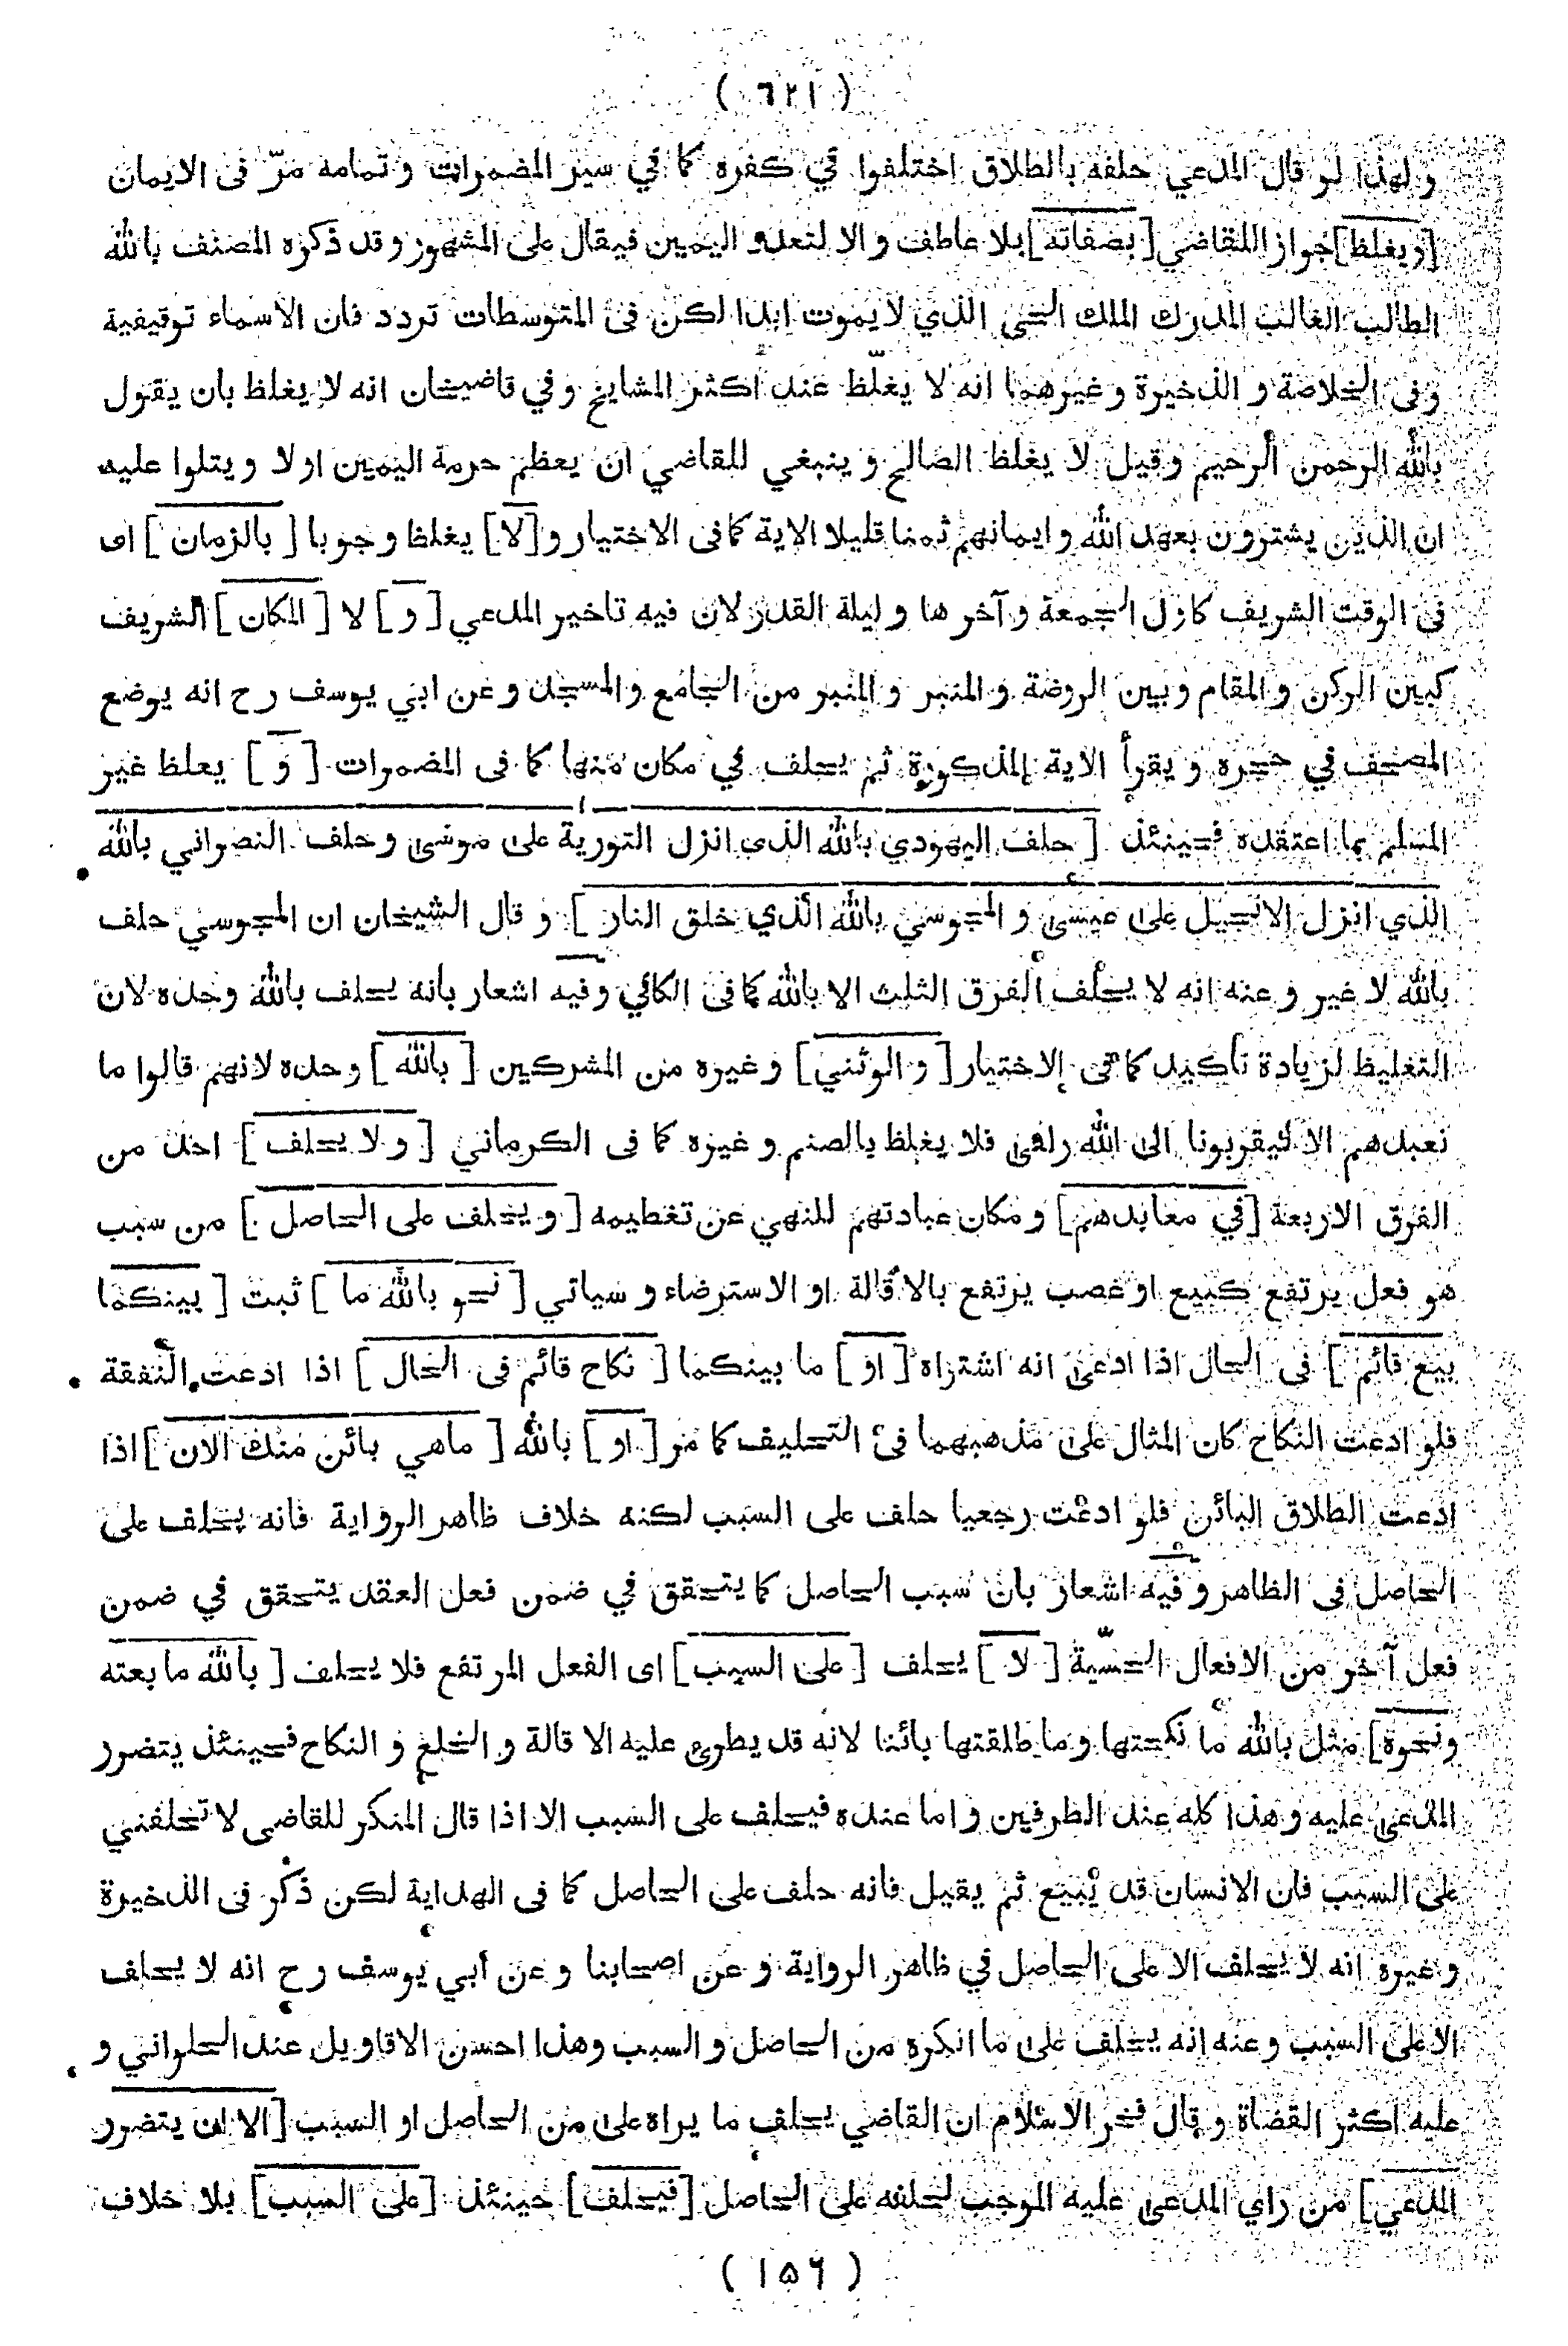 ( ٦٢١ )
و لهذا لو قال المدعي حلفه بالطلاق اختلفوا في كفره كما في سير المضمرات و تمامه مرّ فى الايمان
[ويغلظ] جواز اللقاضي [بصفاته] بلا عاطف و الا لتعدد اليمين فيقال على المشهور و قد ذكره المصنف بالله
الطالب الغالب المدرك الملك الحى الذي لا يموت ابدا لكن فى المتوسطات تردد فان الاسماء توقيفية
و فى الخلاصة و الذخيرة و غيرهما انه لا يغلّظ عند أكثر المشايخ و في قاضيخان انه لا يغلظ بان يقول
بالله الرحمن الرحيم و قيل لا يغلظ الصالح و ينبغي للقاضي ان يعظم حرمة اليمين اولا و يتلوا عليه
ان الذين يشترون بعهد الله و ايمانهم ثمنا قليلا الاية كما فى الاختيار و [لا] يغلظ وجوبا [ بالزمان ] اى
فى الوقت الشريف كاول الجمعة و آخر ها و ليلة القدر لان فيه تاخير المدعي [ و ] لا [ المكان ] الشريف
كبين الركن و المقام و بين الروضة و المنبر و المنبر من الجامع و المسجد و عن ابي يوسف رح انه يوضع
المصحف في حجره و يقرأ الاية المذكورة ثم يحلف في مكان منها كما فى المضمرات [ و ] يغلظ غير
المسلم بما اعتقده فحينئذ [ حلف اليهودي بالله الذى انزل التورية على موسى و حلف النصراني بالله
الذي انزل الانجيل على عيسى و المجوسي بالله الذي خلق النار ] و قال الشيخان ان المجوسي حلف
بالله لا غير و عنه انه لا يحلف الفرق الثلث الا بالله كما فى الكافي و فيه اشعار بانه يحلف بالله وحده لان
التغليظ لزيادة تأكيد كما فى الاختيار [ و الوثني ] و غيره من المشركين [ بالله ] وحده لانهم قالوا ما
نعبدهم الا ليقربونا الى الله زلفى فلا يغلظ بالصنم و غيره كما فى الكرماني [ و لا يحلف ] احد من
الفرق الاربعة [في معابدهم] و مكان عبادتهم للنهي عن تعظيمه [ و يحلف على الحاصل ] من سبب
هو فعل يرتفع كبيع او غصب يرتفع بالاقالة او الاسترضاء و سياتي [ نحو بالله ما ] ثبت [ بينكما
بيع قائم ] فى الحال اذا ادعى انه اشتراه [ او ] ما بينكما [ نكاح قائم فى الحال ] اذا ادعت النفقة
فلو ادعت النكاح كان المثال على مذهبهما فى التحليف كما مر [ او ] بالله [ ماهي بائن منك الان ] اذا
ادعت الطلاق البائن فلو ادعت رجعيا حلف على السبب لكنه خلاف ظاهر الرواية فانه يحلف على
الحاصل فى الظاهر و فيه اشعار بان سبب الحاصل كما يتحقق في ضمن فعل العقد يتحقق في ضمن
فعل آخر من الافعال الحسّية [ لا ] يحلف [ على السبب ] اى الفعل المرتفع فلا يحلف [ بالله ما بعته
ونحوه] مثل بالله ما نكحتها و ما طلقتها بائنا لانه قد يطرى عليه الاقالة و الخلع و النكاح فحينئذ يتضرر
المدعى عليه و هذا كله عند الطرفين و اما عنده فيحلف على السبب الا اذا قال المنكر للقاضى لا تحلفني
على السبب فان الانسان قد يبيع ثم يقيل فانه حلف على الحاصل كما فى الهداية لكن ذكر فى الذخيرة
و غيره انه لا يحلف الا على الحاصل في ظاهر الرواية و عن اصحابنا و عن أبي يوسف رح انه لا يحلف
الا على السبب و عنه انه يحلف على ما انكره من الحاصل و السبب وهذا احسن الاقاويل عند الحلواني و
عليه اكثر القضاة و قال فخر الاسلام ان القاضي يحلف ما يراه على من الحاصل او السبب [ الا ان يتضرر
المدعي ] من راي المدعى عليه الموجب لحلفه على الحاصل [ فيحلف ] حينئذ [ على السبب ] بلا خلاف
( ١٥٦ )